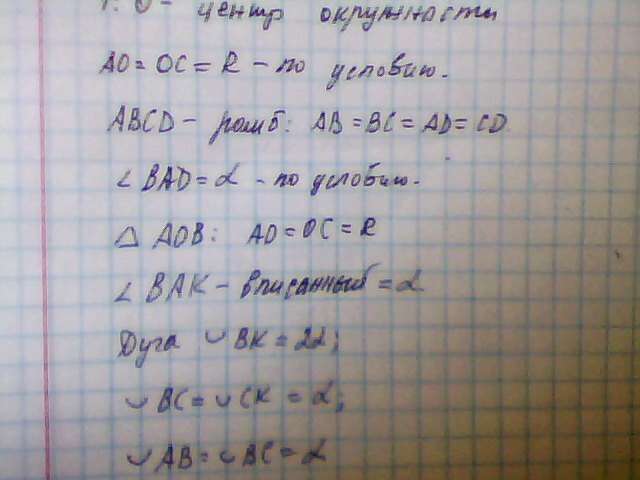 т. О - центр окружности
АО = ОС = R - по условию.
ABCD - ромб: AB = BC = AD = CD.
∠ BAD = α - по условию.
△ AOB: AO = OC = R
∠ BAK - вписанный = α
Дуга ◡ BK = 2α;
◡ BC = ◡ CK = α;
◡ AB = ◡ BC = α